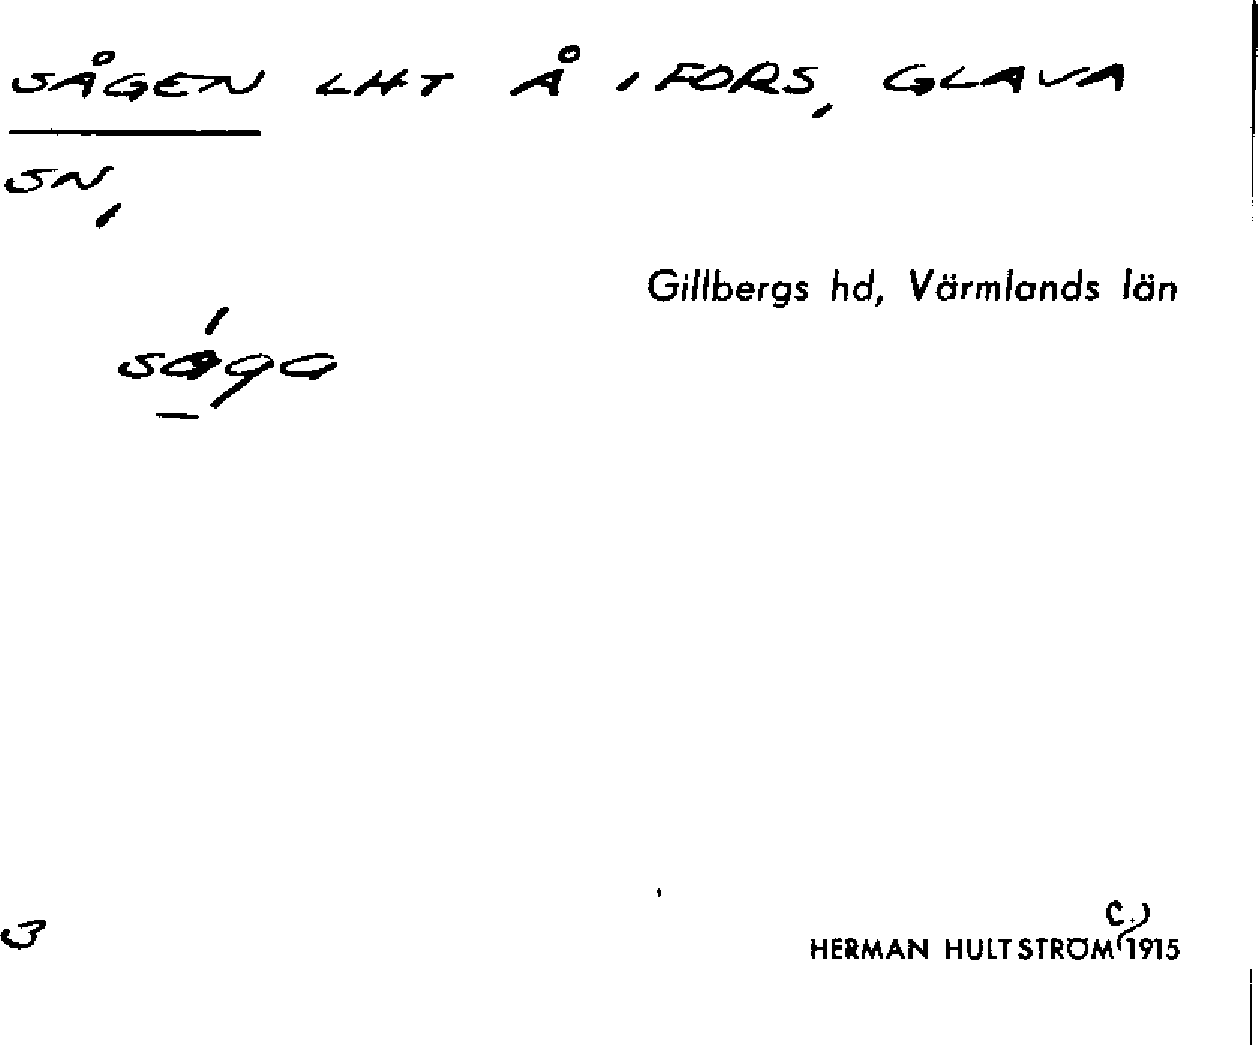 SÅGEN LHT Å IFORS, GLAVA
SN,
Gillbergs hd, Värmlands län
3
HERMAN HULTSTRÖM c. 1915